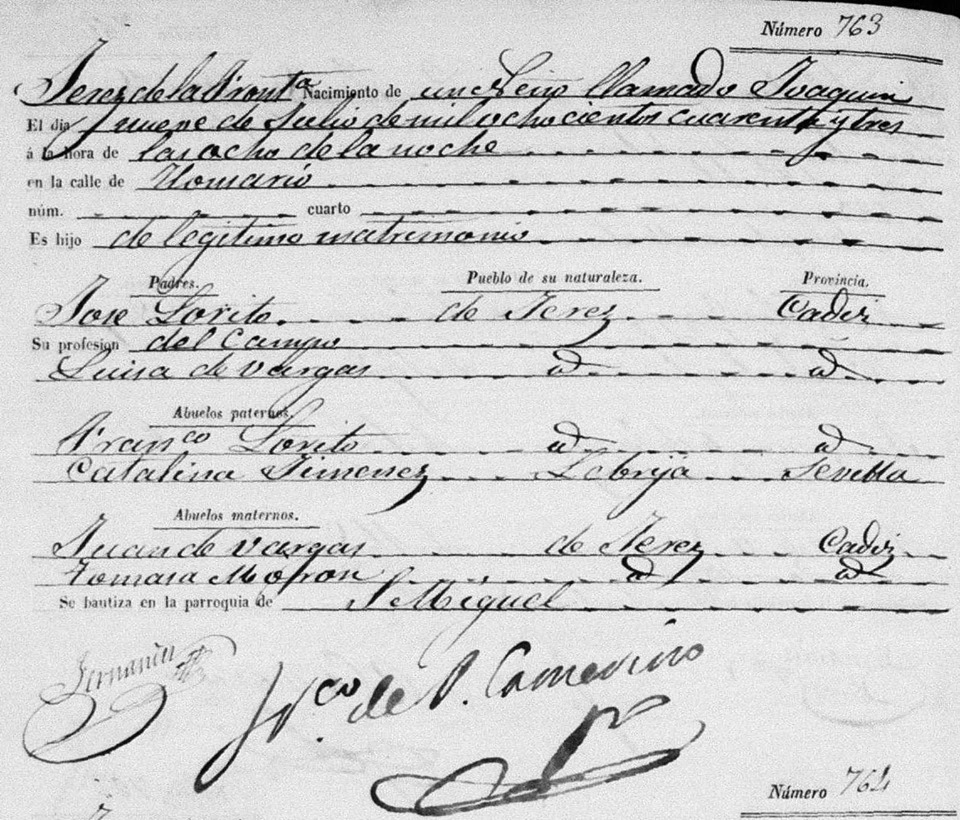 Número 763
Jerez de la Front.ª Nacimiento de un Niño llamado Joaquin
El dia nueve de Julio de mil ochocientos cuarenta y tres
á la hora de las ocho de la noche
en la calle de
núm. cuarto
Es hijo de legitimo matrimonio
Padres. Pueblo de su naturaleza. Provincia.
Jose Lorito de Jerez Cadiz
Su profesion del Campo
Luisa de Vargas id id
Abuelos paternos.
Fran.co Lorito id id
Catalina Jimenez Lebrija Sevilla
Abuelos maternos.
Juan de Vargas de Jerez Cadiz
Tomasa Moron id id
Se bautiza en la parroquia de S Miguel
de P. Camerino
Número 764